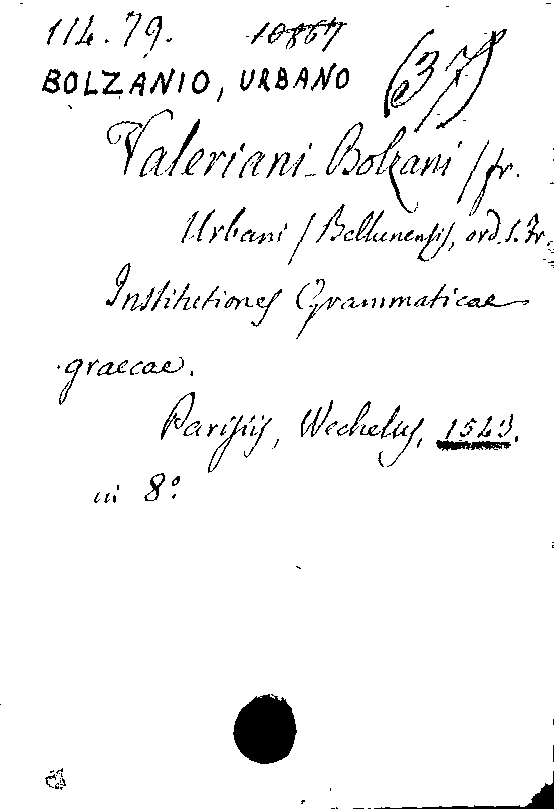 114.79. 10867
BOLZANIO, URBANO (37)
Valeriani-Bolzani /fr.
Urbani / Bellunensis, ord. S. Fr.
Institutiones Grammaticae
graecae.
Parisiis, Wechelus, 1543.
in 8°